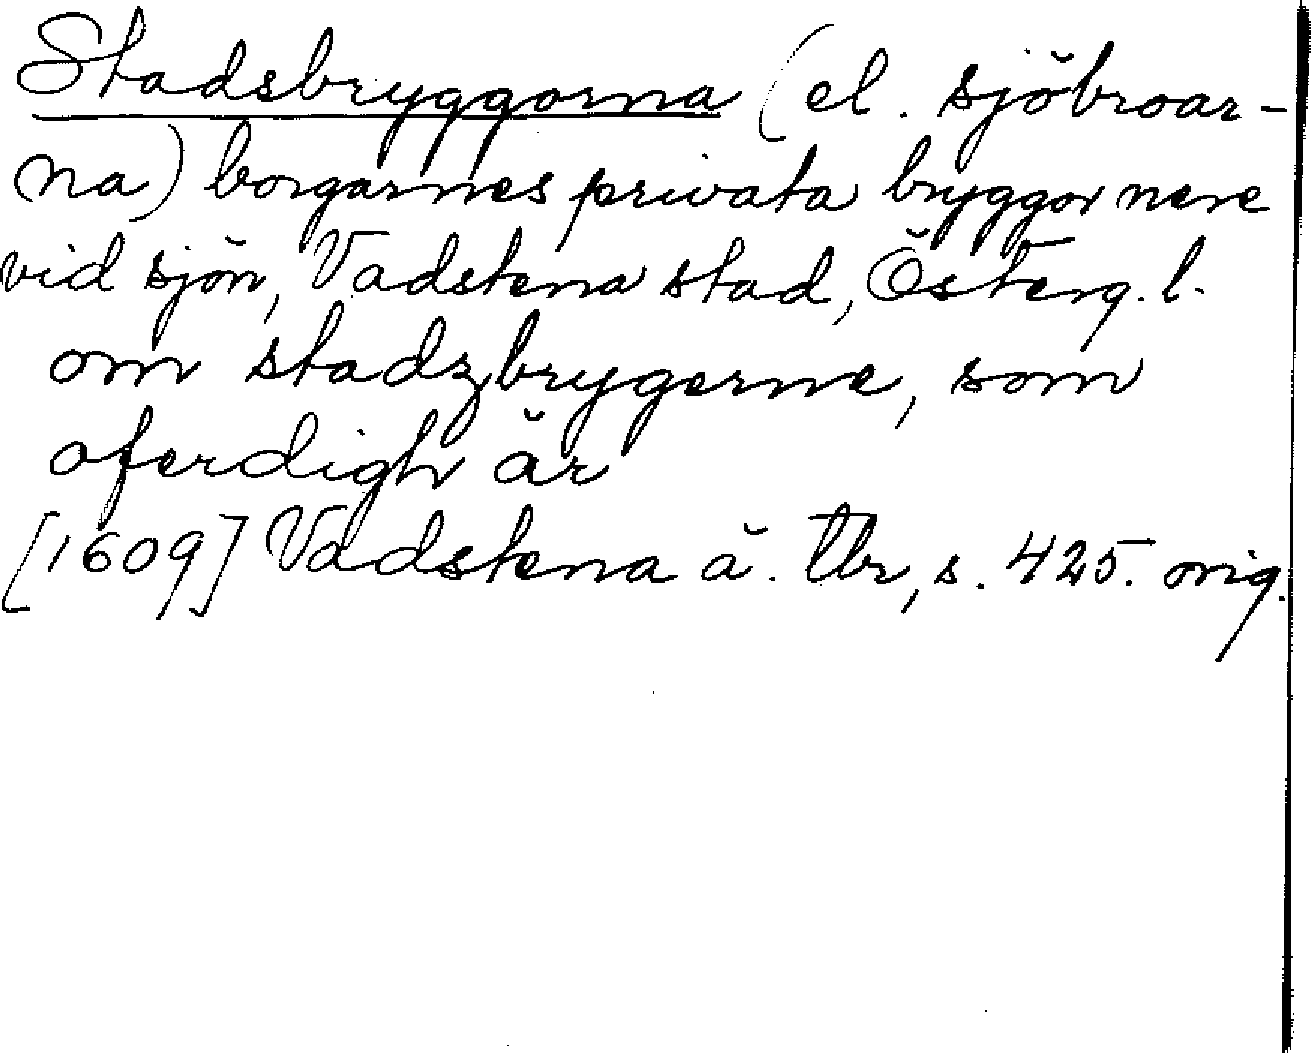 Stadsbryggorna (el. sjöbroar-
na) borgarnes privata bryggor nere
vid sjön, Vadstena stad, Österg. l.
om stadzbrygerne, som
oferdigh är
[1609] Vadstena ä. tbr, s. 425. orig.